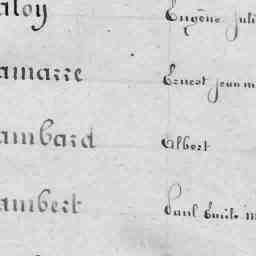 aloy Eugène Juli
amarre Ernest Jean m
ambard Albert
ambert Paul Emile m